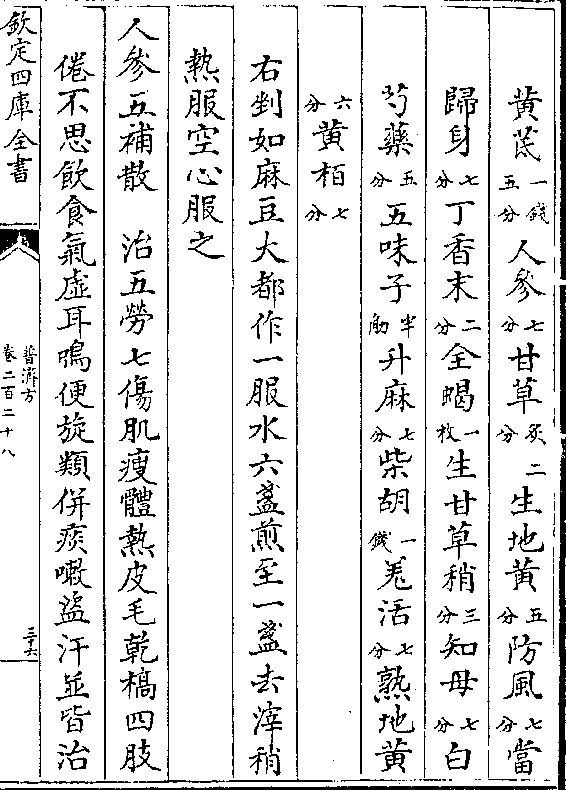 黄茋一錢五分人參七分甘草炙二分生地黄五分防風七分當
歸身七分丁香末二分全蝎一枚生甘草稍三分知母七分白
芍藥五分五味子半觔升麻七分柴胡一錢羗活七分熟地黄
六分黄栢七分
右剉如麻豆大都作一服水六盞煎至一盞去滓稍
熱服空心服之
人參五補散　治五勞七傷肌瘦體熱皮毛乾槁四肢
倦不思飲食氣虚耳鳴便旋頻併痰嗽盜汗並皆治
欽定四庫全書
普濟方
卷二百二十八
三十六